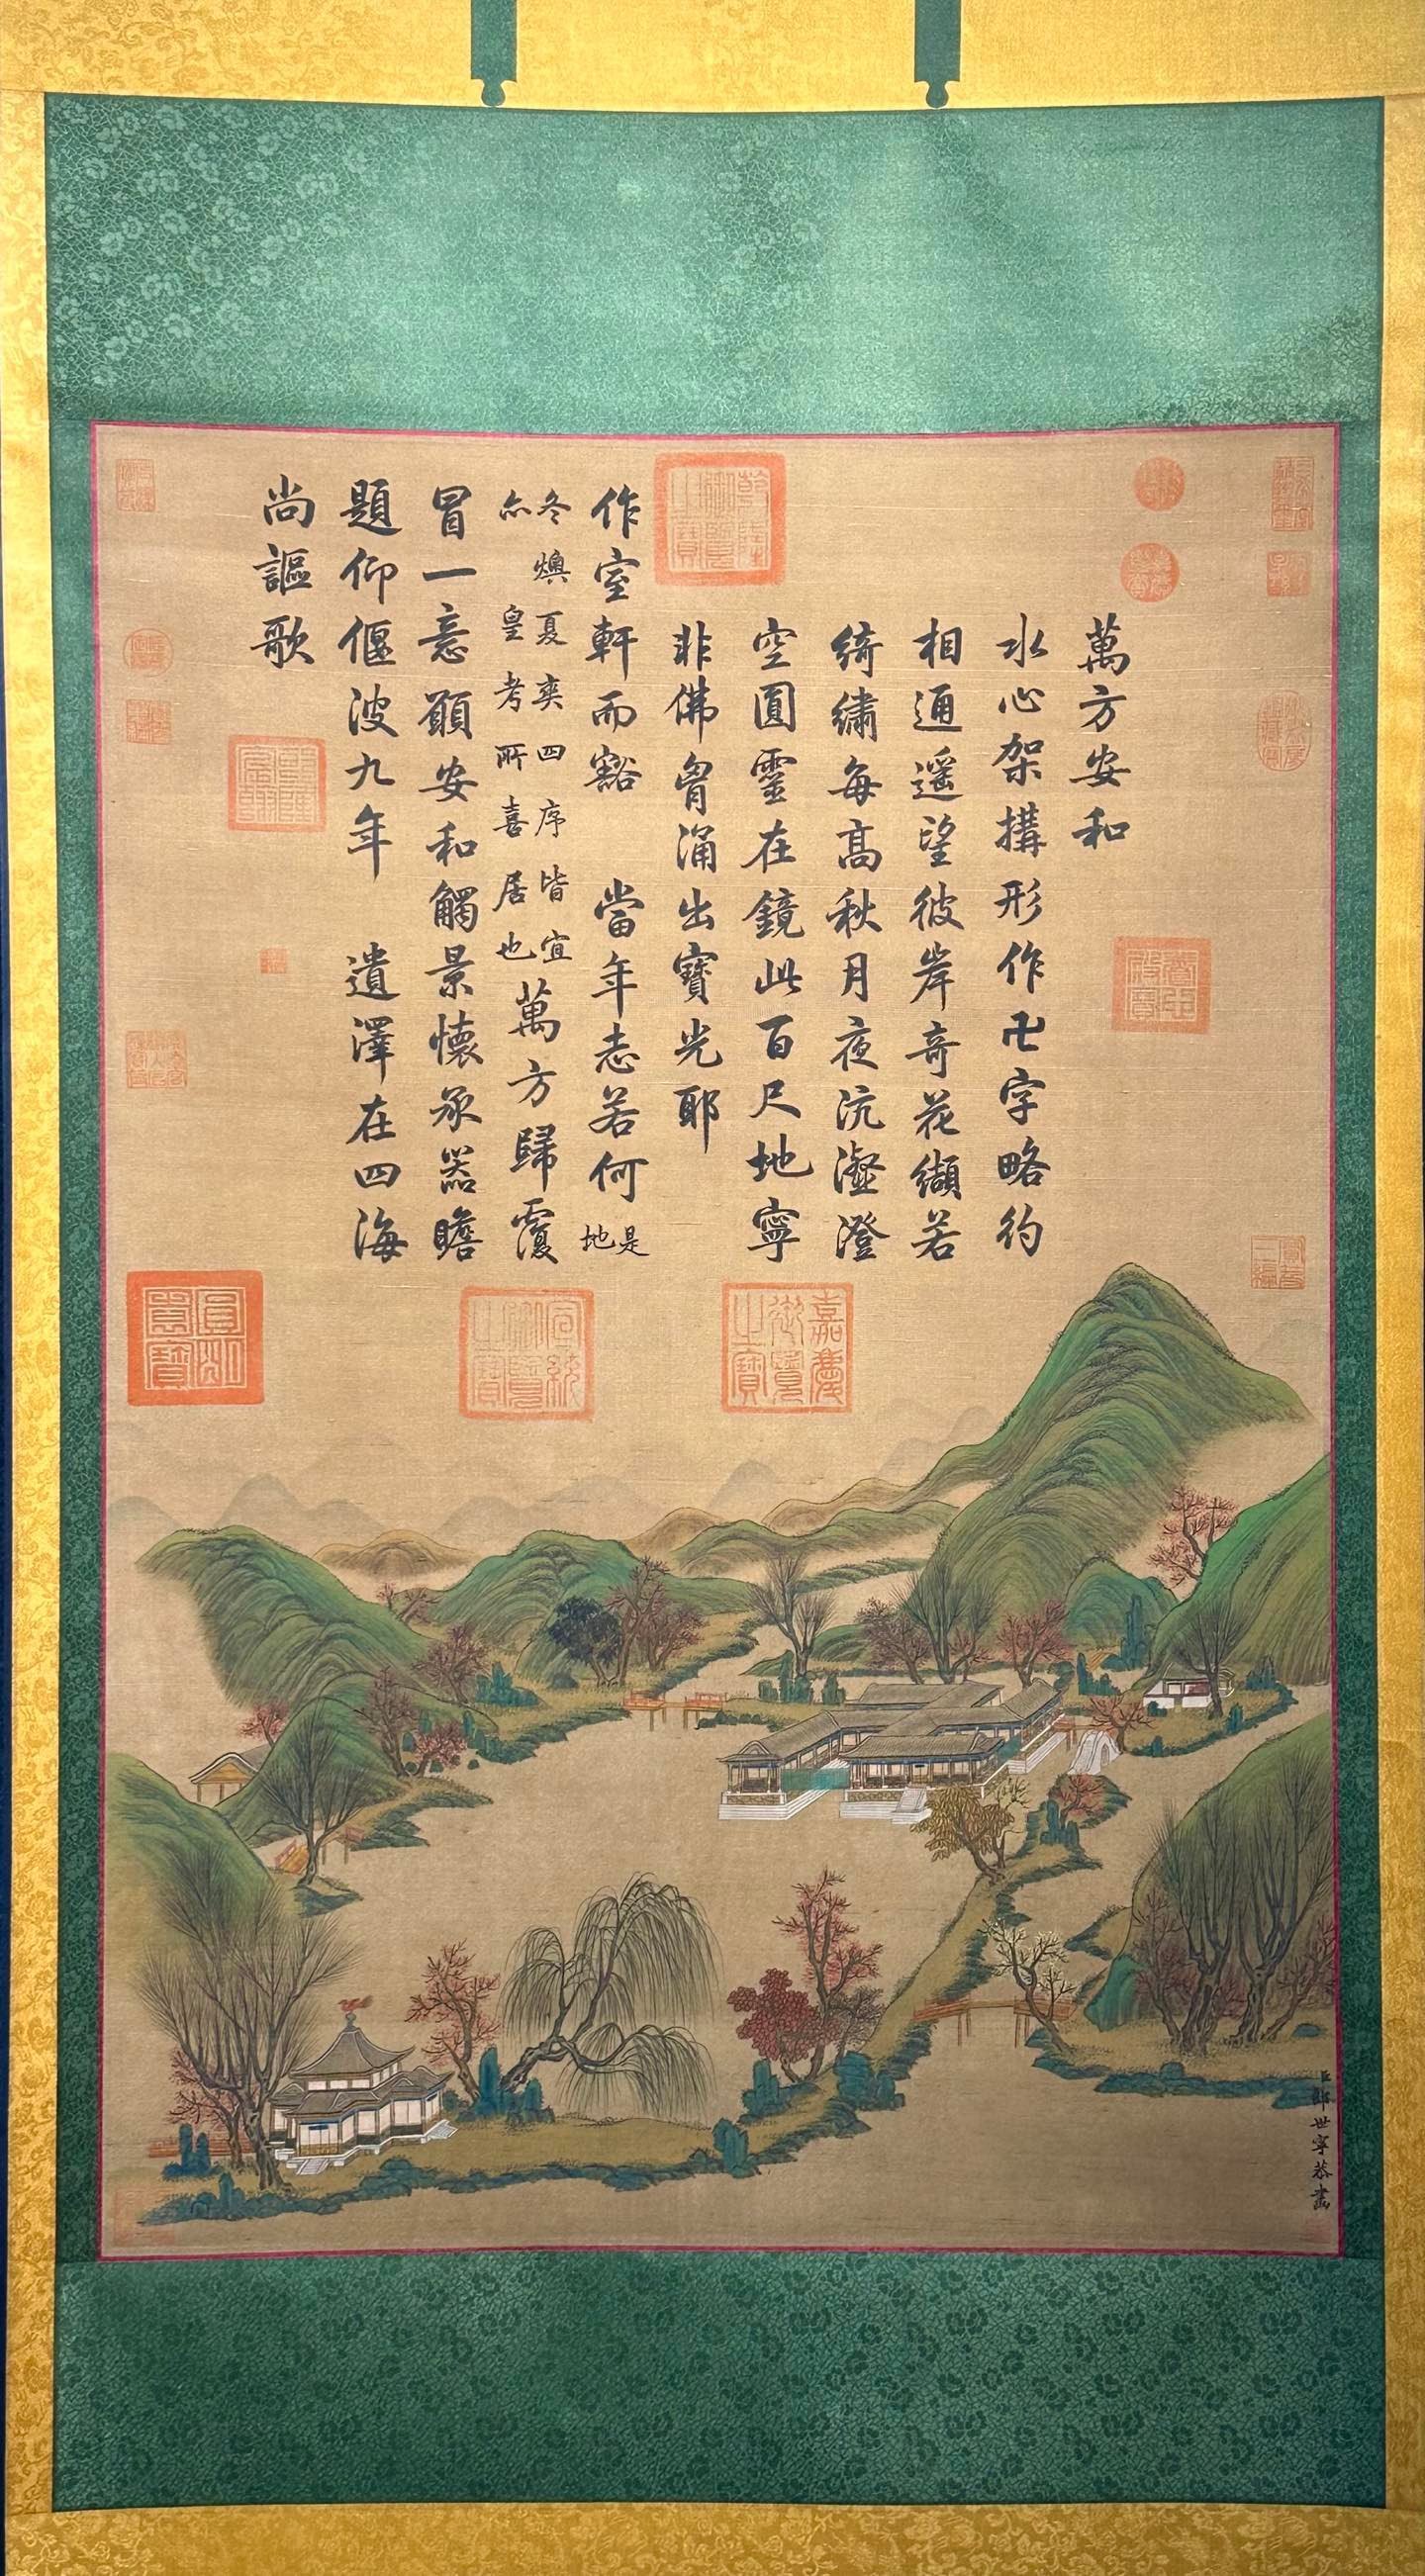 萬方安和
水心架搆形作卍字略彴
相通遥望彼岸奇花纈若
綺繡每高秋月夜沆瀣澄
空圓靈在鏡此百尺地寧
非佛胷涌出寶光耶
作室軒而豁當年志若何是地
冬燠夏奕四序皆宜
亦皇考所喜居也萬方歸覆
冒一意願安和觸景懷承器瞻
題仰偃波九年遺澤在四海
尚謳歌
乾隆御覽之寶
嘉慶御覽之寶
宣統御覽之寶
臣郎世寧恭畫